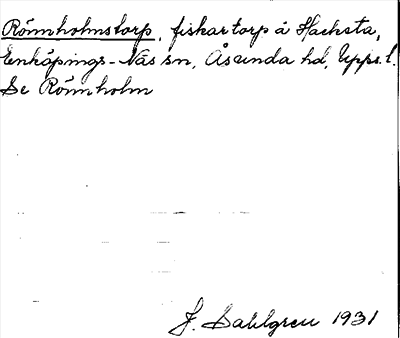 Rönnholmstorp, fiskartorp å Hacksta,
Enköpings-Näs sn, Åsunda hd, Upps. l.
Se Rönnholm
J. Sahlgren 1931